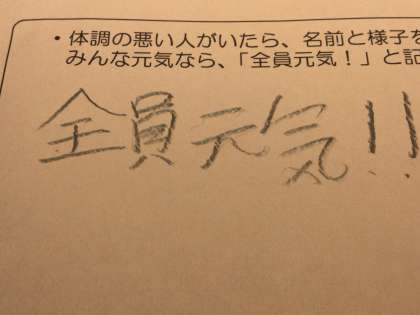 ・体調の悪い人がいたら、名前と様子を
みんな元気なら、「全員元気！」と記
全員元気!!